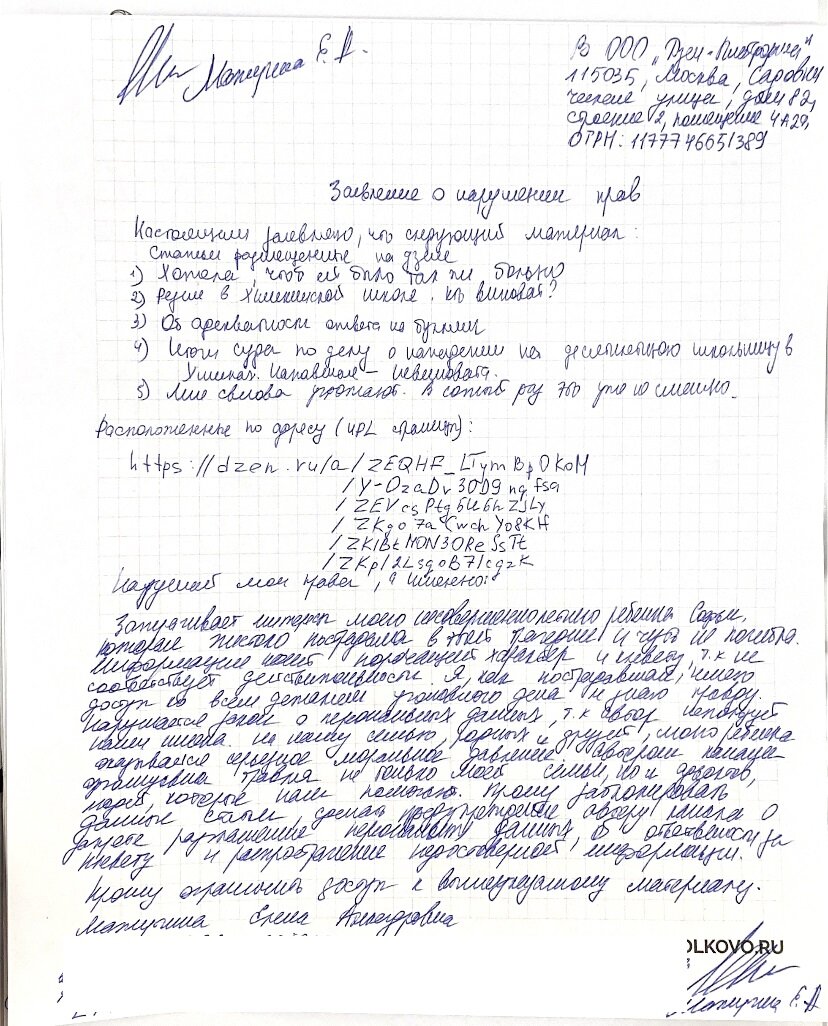 Матигина Е.А.
В ООО „Дзен-Платформа"
115035, Москва, Садовни
ческая улица, дом 82,
строение 2, помещение 4А29,
ОГРН: 1177746651389
Заявление о нарушении прав
Настоящим заявляю, что следующий материал:
Статьи размещенные на дзене
1) Хотела, чтоб ей было так же больно
2) Резня в Химкинской школе. Кто виноват?
3) Об адекватности ответа на буллинг
4) Итоги суда по делу о нападении на десятилетнюю школьницу в
Химках. Напавшая – невиновата.
5) Мне снова угрожают. В сотый раз это уже не смешно.
Расположенные по адресу (URL страницы):
https://dzen.ru/a/ZEQHF_LTymBpOKoM
/Y-OzaDv30D9ngfsa
/ZEVcsPtg6U6hZjLy
/ZKgo7aCwchYo8KH
/ZKIBtMON3OReSsTt
/ZKpl2LsgoB7lcgzK
Нарушает мои права, а именно:
Затрагивает интересы моего несовершеннолетнего ребенка Софьи,
которая жестоко пострадала в этой трагедии и чуть не погибла.
Информация носит порочащий характер и клевету, т.к не
соответствует действительности. Я, как пострадавшая, имею
доступ ко всем деталям уголовного дела и знаю правду.
Нарушается закон о персональных данных, т.к автор использует
наши имена. На нашу семью, родных и друзей, моего ребенка
оказывается серьезное моральное давление, автором канала
допущена травля не только моей семьи, но и
людей, которые нам помогали. Прошу заблокировать
данные статьи, сделать предупреждение автору канала о
запрете разглашения персональных данных, об ответственности за
клевету и распространение недостоверной информации.
Прошу ограничить доступ к вышеуказанному материалу.
Матигина Елена Александровна
OLKOVO.RU
Матигина Е.А